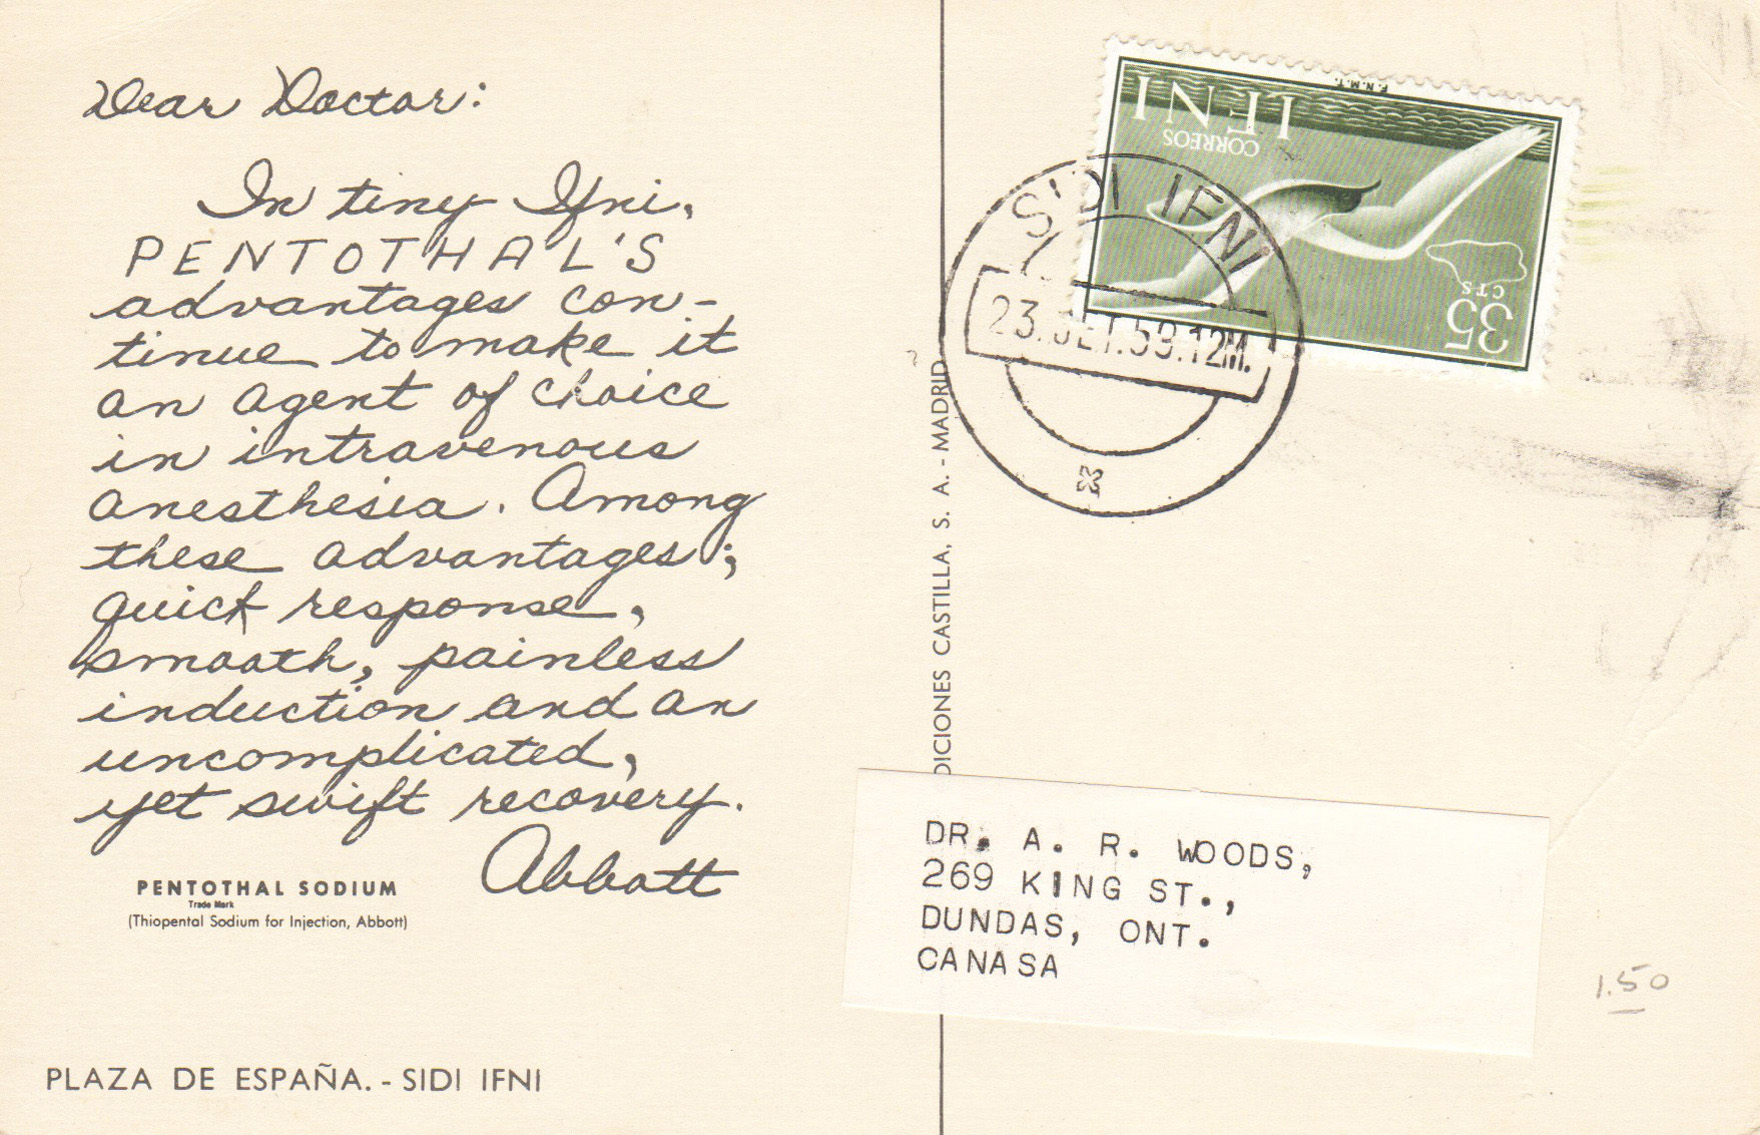 Dear Doctor:
In tiny Ifni,
PENTOTHAL'S
advantages con-
tinue to make it
an agent of choice
in intravenous
anesthesia. Among
these advantages;
quick response,
smooth, painless
induction and an
uncomplicated,
yet swift recovery.
Abbott
PENTOTHAL SODIUM
Trade Mark
(Thiopental Sodium for Injection, Abbott)
PLAZA DE ESPAÑA.-SIDI IFNI
DICIONES CASTILLA, S. A. - MADRID
F.N.M.T.
IFNI
CORREOS
35
CTS
SIDI IFNI
23.SET.59.12M.
DR. A. R. WOODS,
269 KING ST.,
DUNDAS, ONT.
CANASA
1.50